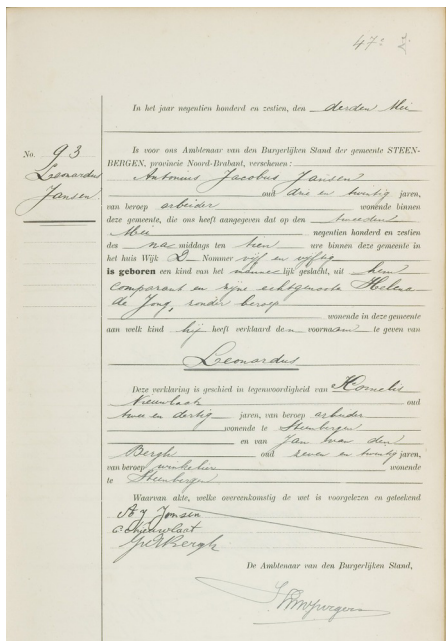 47
In het jaar negentien honderd en zestien, den derden Mei
No. 93
Leonardus
Jansen
Is voor ons Ambtenaar van den Burgerlijken Stand der gemeente STEEN-
BERGEN, provincie Noord-Brabant, verschenen:
Antonius Jacobus Jansen
oud drie en twintig jaren,
van beroep arbeider wonende binnen
deze gemeente, die ons heeft aangegeven dat op den tweeden
Mei negentien honderd en zestien
des na middags ten tien ure binnen deze gemeente in
het huis Wijk D Nommer vijf en vijftig
is geboren een kind van het mannelijk geslacht, uit hem
comparant en zijne echtgenoote Helena
de Jong, zonder beroep
wonende in deze gemeente
aan welk kind hij heeft verklaard den voornaam te geven van
Leonardus
Deze verklaring is geschied in tegenwoordigheid van Kornelis
Nieuwlaat oud
twee en dertig jaren, van beroep arbeider
wonende te Steenbergen
en van Jan van den
Bergh oud zeven en twintig jaren,
van beroep winkelier wonende
te Steenbergen
Waarvan akte, welke overeenkomstig de wet is voorgelezen en geteekend
A J Jansen
C Nieuwlaat
Bergh
De Ambtenaar van den Burgerlijken Stand,